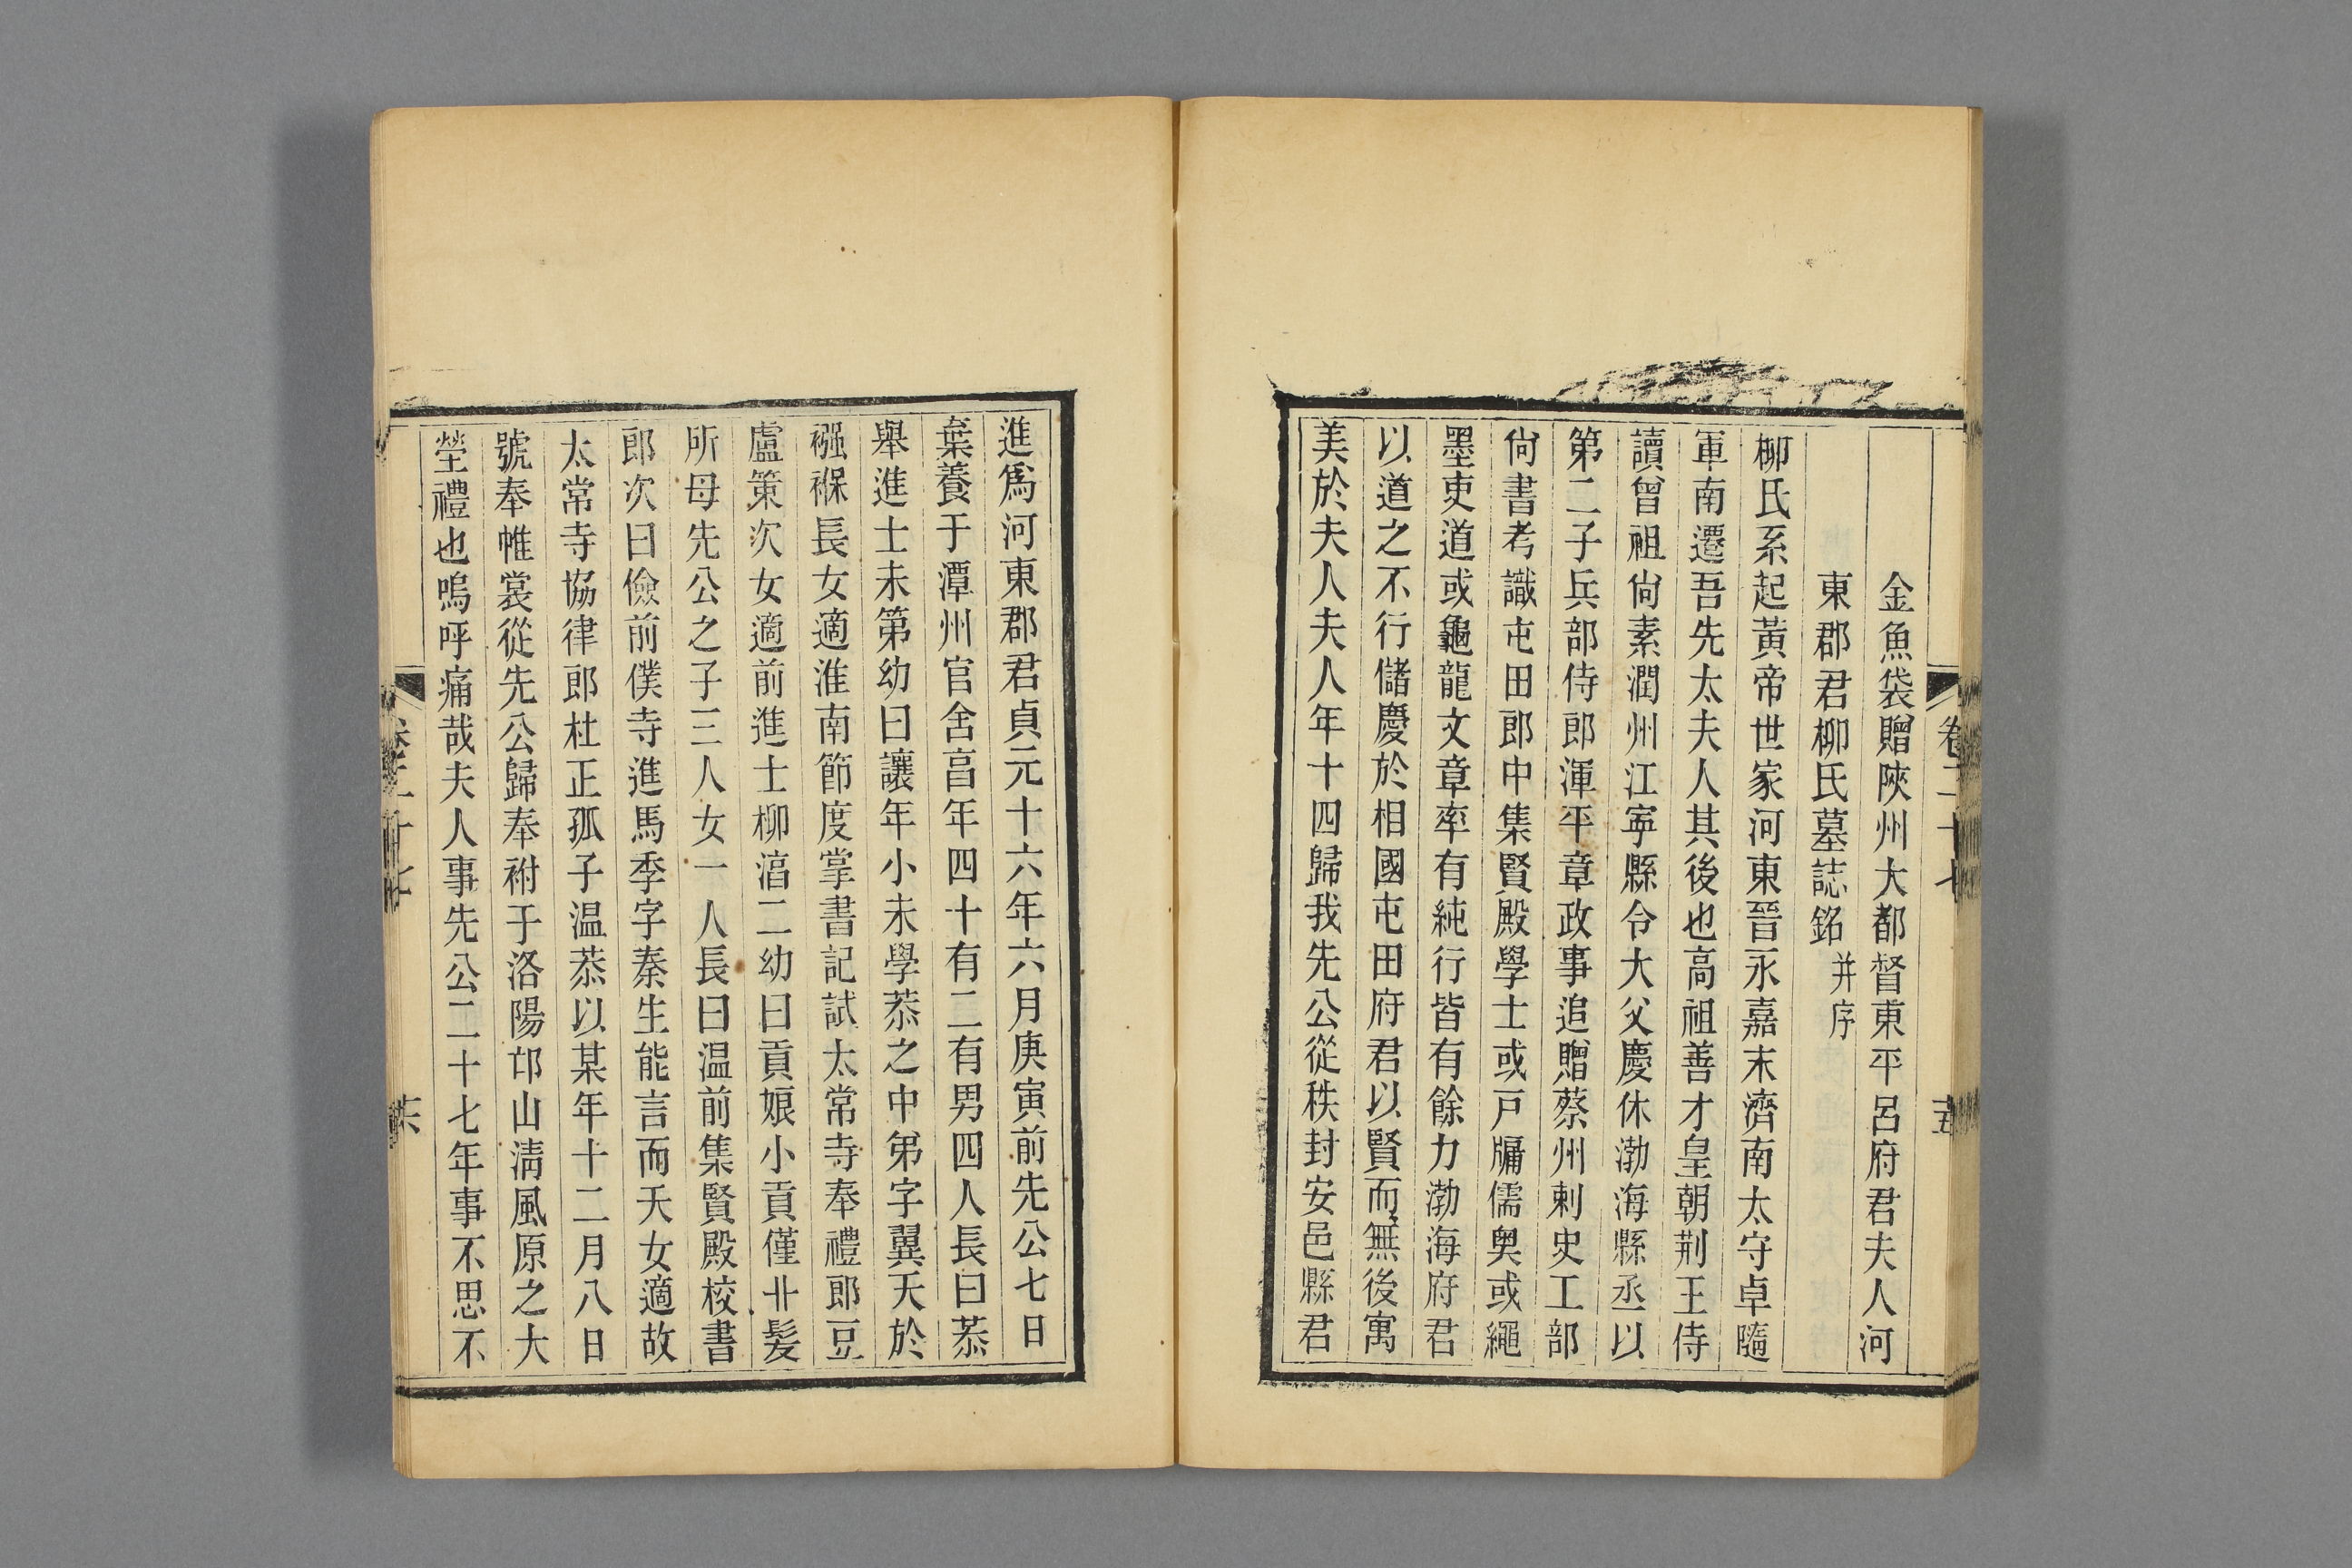 金魚袋贈陜州大都督東平呂府君夫人河
東郡君柳氏墓誌銘并序
柳氏系起黃帝世家河東晉永嘉末濟南太守卓隨
軍南遷吾先太夫人其後也高祖善才皇朝荆王侍
讀曾祖尙素潤州江寧縣令大父慶休渤海縣丞以
第二子兵部侍郎渾平章政事追贈蔡州刺史工部
尙書考識屯田郎中集賢殿學士或戸牖儒奥或繩
墨吏道或龜龍文章率有純行皆有餘力渤海府君
以道之不行儲慶於相國屯田府君以賢而無後寓
美於夫人夫人年十四歸我先公從秩封安邑縣君
進爲河東郡君貞元十六年六月庚寅前先公七日
棄養于潭州官舍亯年四十有二有男四人長曰恭
舉進士未第幼曰讓年小未學恭之中弟字翼夭於
襁褓長女適淮南節度掌書記試太常寺奉禮郎豆
盧策次女適前進士柳湻二幼曰貢娘小貢僅丱髮
所母先公之子三人女一人長曰温前集賢殿校書
郎次曰儉前僕寺進馬季字秦生能言而夭女適故
太常寺協律郎杜正孤子温恭以某年十二月八日
號奉帷裳從先公歸奉祔于洛陽邙山淸風原之大
塋禮也嗚呼痛哉夫人事先公二十七年事不思不
卷二十七